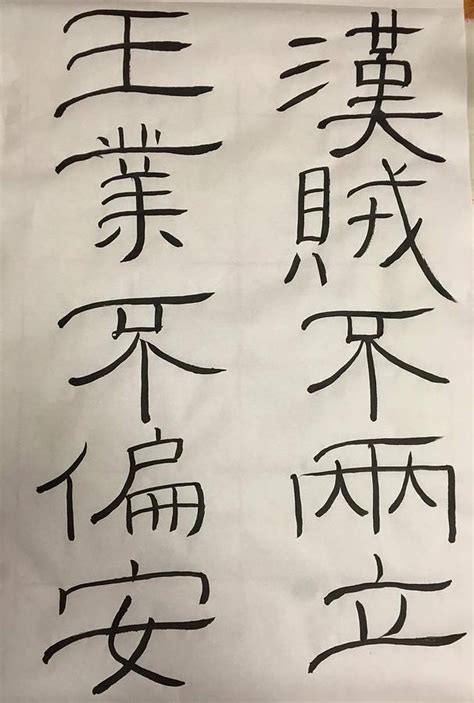 漢賊不兩立
王業不偏安